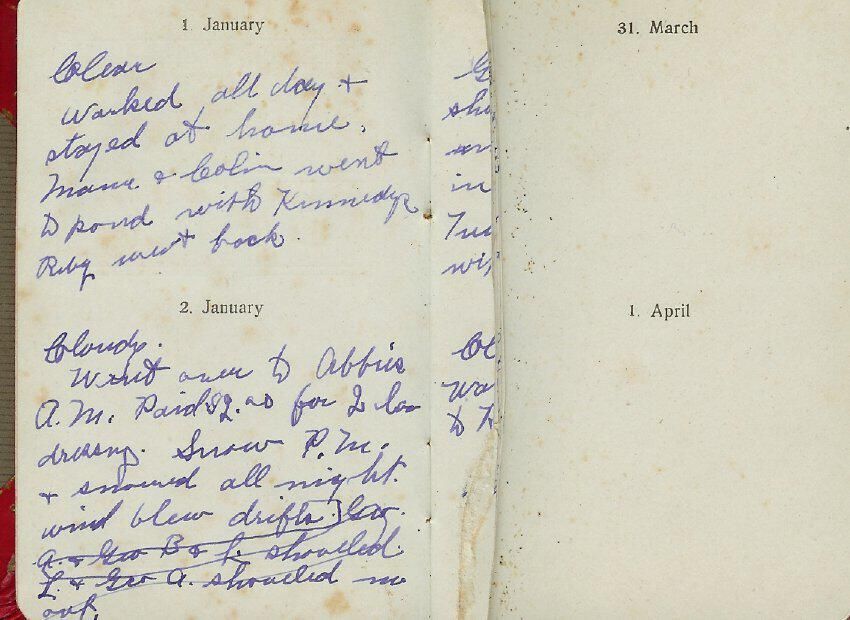 1. January
Clear
Worked all day +
stayed at home.
Mame & Colin went
to pond with Kennedys
Ruby went back.
2. January
Cloudy.
Went over to Abbies
A.M. Paid $2.00 for 2 loa
dressing. Snow P.M.
+ snowed all night.
wind blew drifts. Geo.
A. & Geo B & L. shoveled
L. & Geo A. shoveled me
out.
sh
in
Tu
wi
Cl
Wa
to K
31. March
1. April